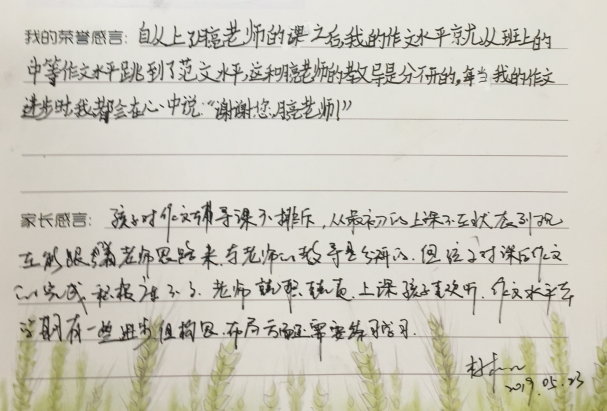 我的荣誉感言：自从上了腾老师的课之后，我的作文水平就从班上的
中等作文水平跳到了范文水平，这和腾老师的教导是分不开的，每当我的作文
进步时，我都会在心中说：“谢谢您，腾老师！”
家长感言：孩子对作文辅导课不排斥，从最初的上课不在状态到现
在能跟着老师思路来，与老师的教导是分不开的，但孩子对课后作文
的完成积极性不高，老师认真负责，上课孩子喜欢听，作文水平在
学期有一些进步，但构思、布局方面还需要练习学习。
2019.05.23